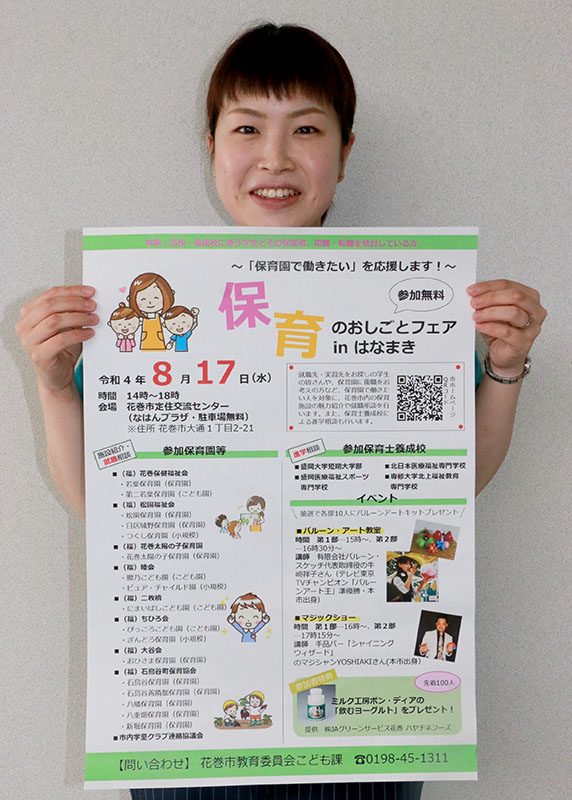 ～「保育園で働きたい」を応援します！～
参加無料
保育のおしごとフェア
in はなまき
令和4年8月17日(水)
時間　14時～18時
会場　花巻市定住交流センター
（なはんプラザ・駐車場無料）
※住所 花巻市大通１丁目2-21
就職先・実習先をお探しの学生
の皆さんや、保育園に復職をお
考えの方など、保育園で働きた
い人を対象に、花巻市内の保育
施設の魅力紹介や就職相談を行
います。また、保育士養成校に
よる進学相談も行います。
市ホームページ
QRコード
施設紹介・
就職相談
参加保育園等
■（福）花巻保健福祉会
・若葉保育園（保育園）
・第二若葉保育園（こども園）
■（福）松園福祉会
・松園保育園（保育園）
・日居城野保育園（保育園）
・つくし保育園（小規模）
■（福）花巻太陽の子保育園
・花巻太陽の子保育園（保育園）
■（福）睦会
・ピュア・チャイルド園（小規模）
■（福）二枚橋
・にまいばしこども園（こども園）
■（福）ちひろ会
・ぴっころこども園（こども園）
・ぎんどろ保育園（小規模）
■（福）大谷会
・おひさま保育園（保育園）
■（福）石鳥谷町保育協会
・石鳥谷保育園（保育園）
・石鳥谷善隣館保育園（保育園）
・八幡保育園（保育園）
・八重畑保育園（保育園）
・新堀保育園（保育園）
■市内学童クラブ連絡協議会
進学相談
参加保育士養成校
■盛岡大学短期大学部
■北日本医療福祉専門学校
■盛岡医療福祉スポーツ
専門学校
■専修大学北上福祉教育
専門学校
イベント
抽選で各部10人にバルーンアートキットプレゼント
■バルーン・アート教室
時間　第１部…15時～、第２部
…16時30分～
講師　有限会社バルーン・
スケッチ代表取締役の牛
崎祥子さん（テレビ東京
TVチャンピオン「バルー
ンアート王」準優勝・本
市出身）
■マジックショー
時間　第１部…16時～、第２部
…17時15分～
講師　手品バー「シャイニング
ウィザード」
のマジシャンYOSHIAKIさん(本市出身)
参加者特典
先着100人
ミルク工房ボン・ディアの
「飲むヨーグルト」をプレゼント！
提供　㈱JAグリーンサービス花巻 ハヤチネフーズ
【問い合わせ】 花巻市教育委員会こども課　☎0198-45-1311